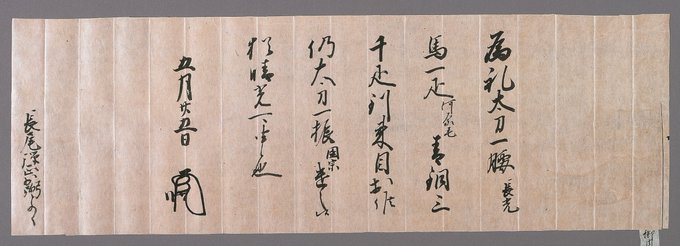 為礼太刀一腰 長光
馬一疋 河原毛 青銅三
千疋到来目出候
仍太刀一振 国宗 遣之候
猶晴光可申也
五月廿五日
長尾弾正少弼とのへ